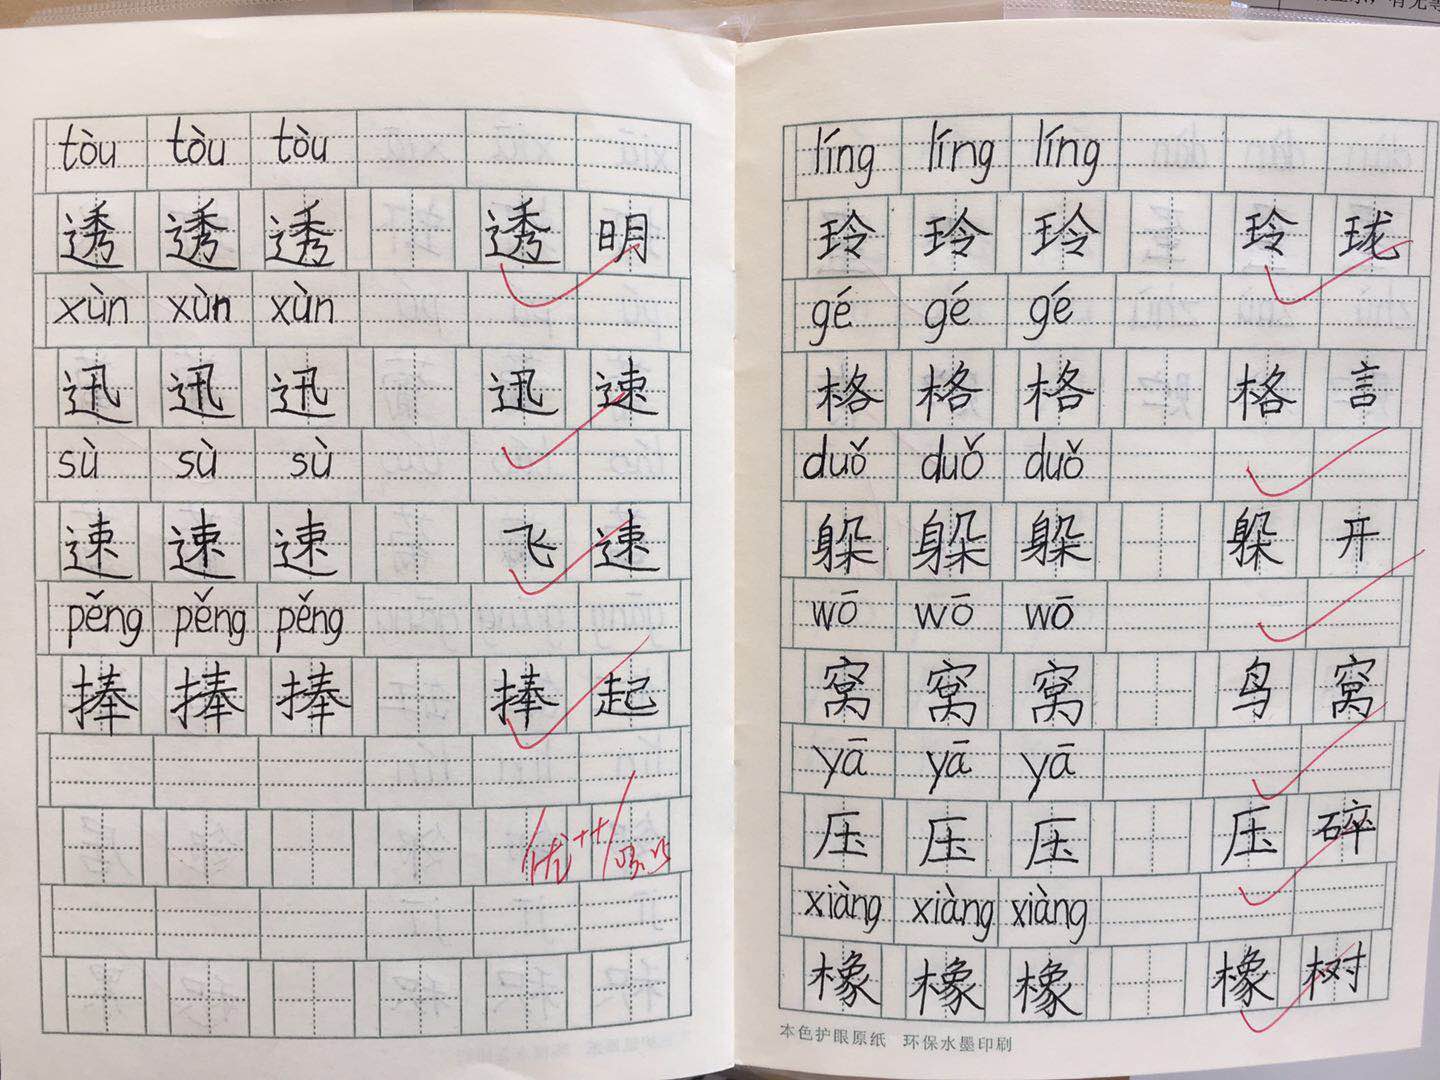 tòu tòu tòu
透 透 透 透 明
xùn xùn xùn
迅 迅 迅 迅 速
sù sù sù
速 速 速 飞 速
pěng pěng pěng
捧 捧 捧 捧 起
优++
líng líng líng
玲 玲 玲 玲 珑
gé gé gé
格 格 格 格 言
duǒ duǒ duǒ
躲 躲 躲 躲 开
wō wō wō
窝 窝 窝 鸟 窝
yā yā yā
压 压 压 压 碎
xiàng xiàng xiàng
橡 橡 橡 橡 树
本色护眼原纸 环保水墨印刷